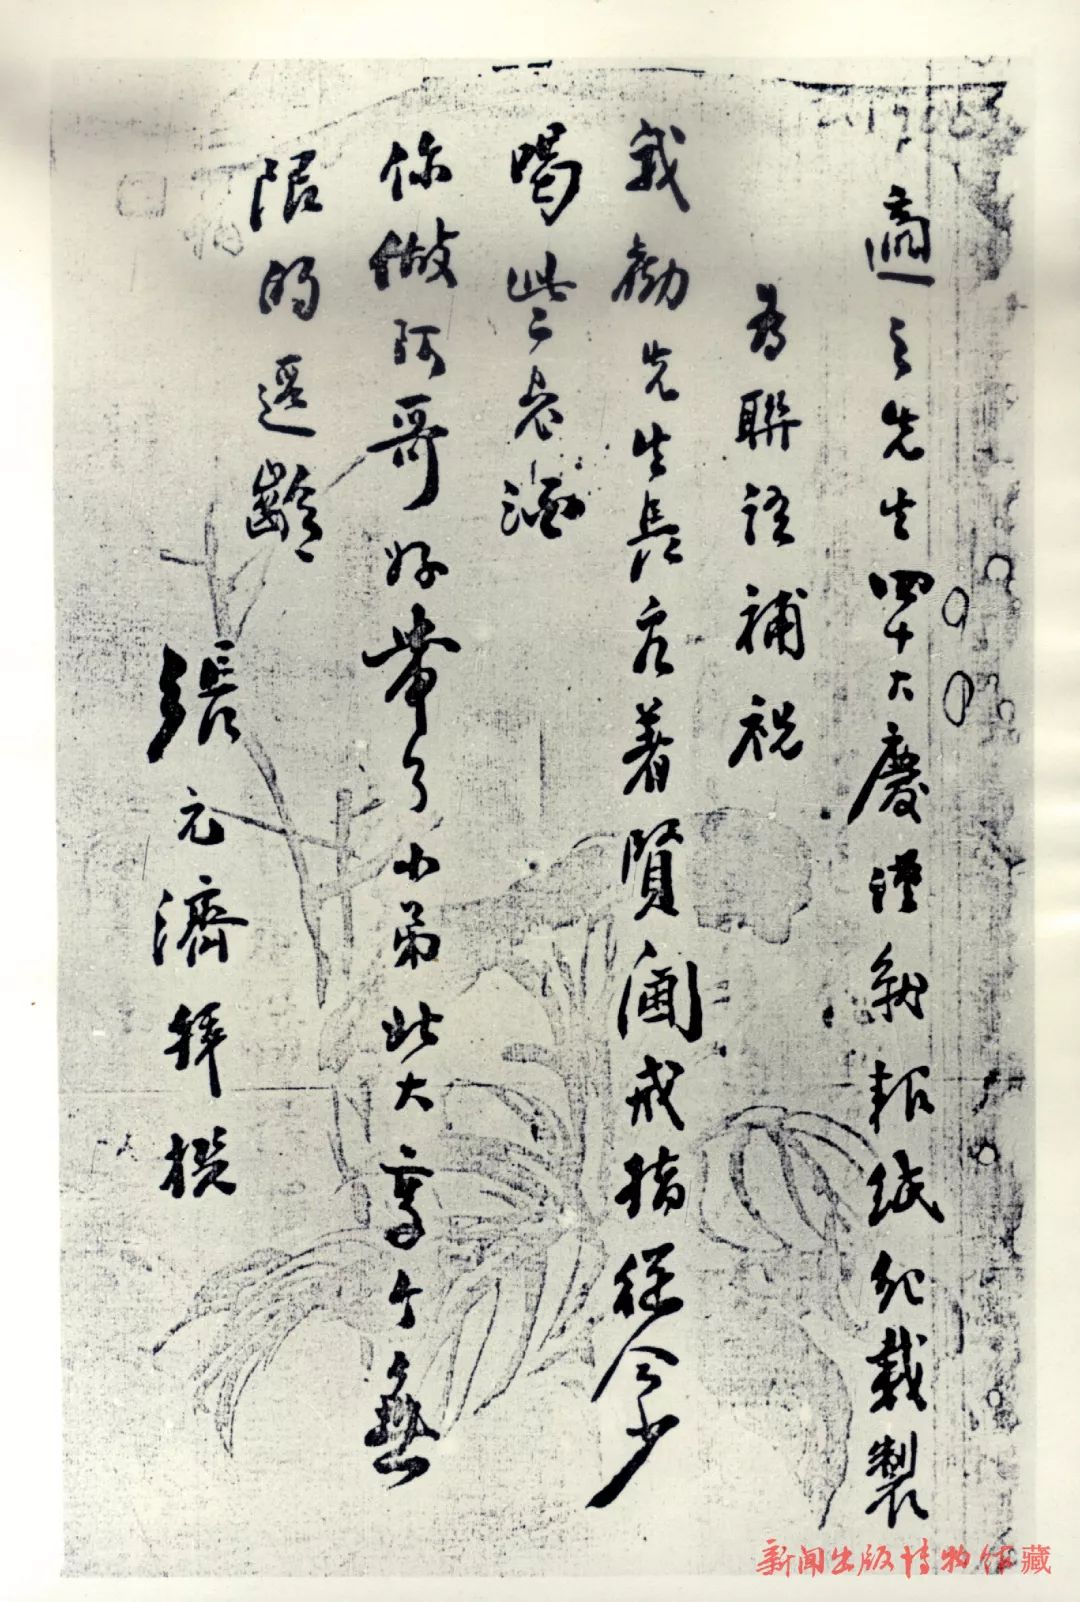 適之先生四十大慶謹就報紙所載製
為聯語補祝
我勸先生長看著賢閫戒指從今少
喝些老酒
你做阿哥好帶了小弟北大享个無
限的遐齡
張元濟拜撰
新闻出版博物馆藏